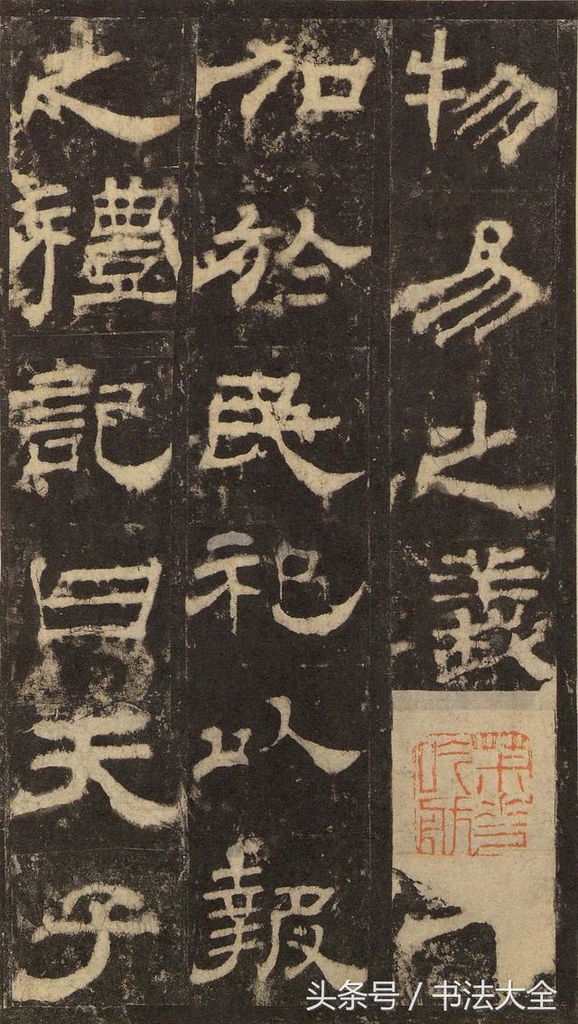 物易之義
加於民祀以報
之禮記曰天子
头条号 / 书法大全